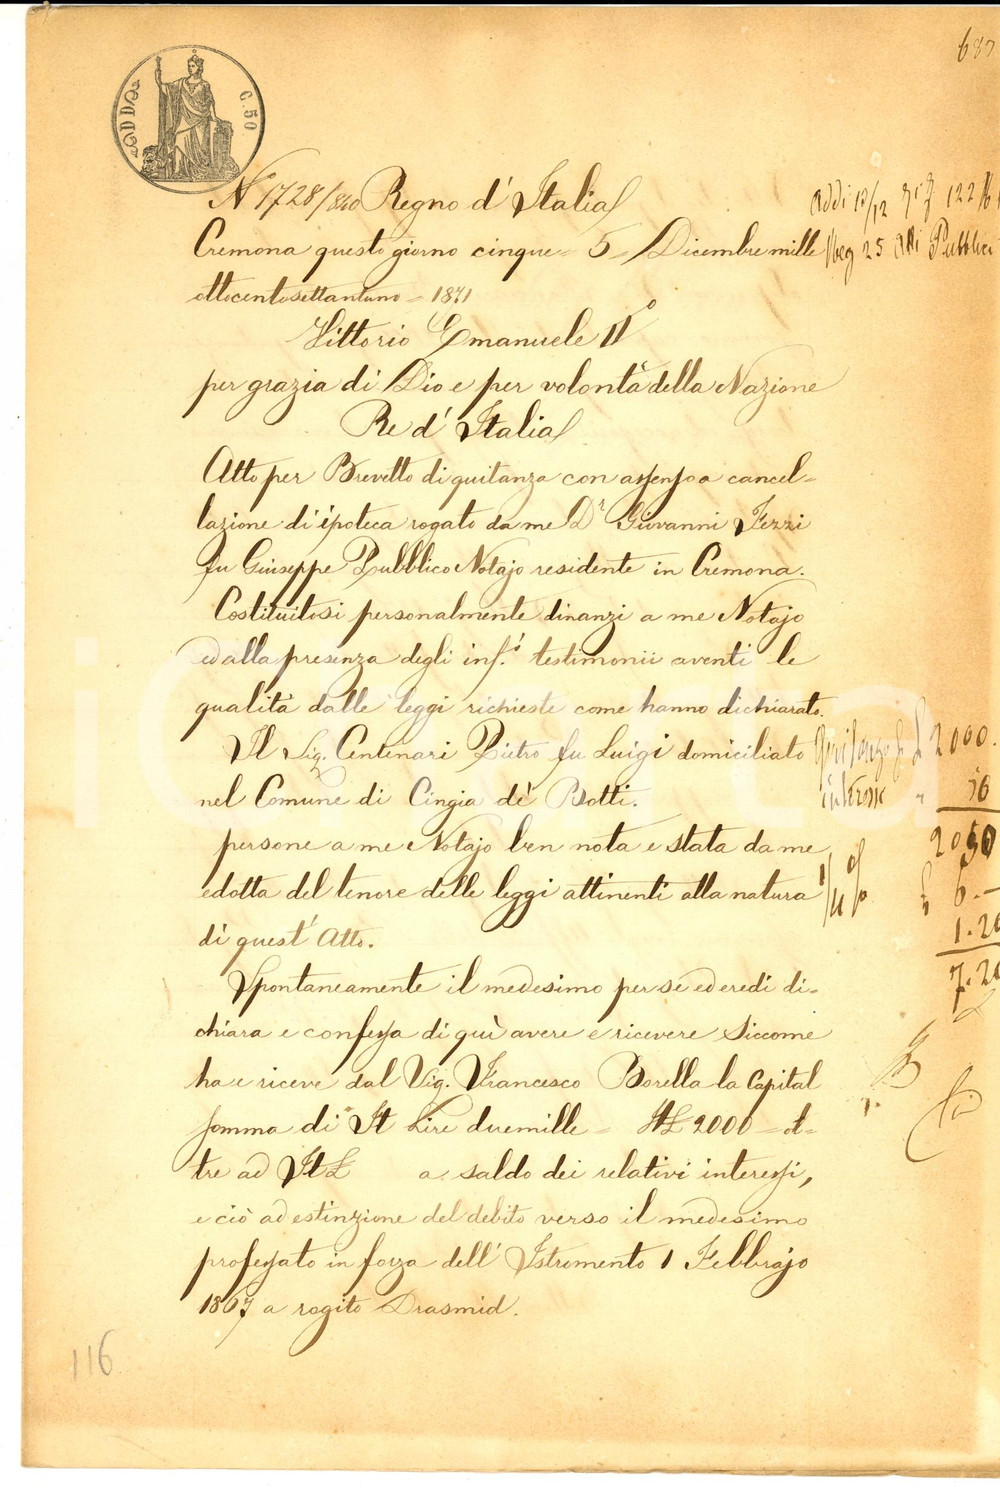 687
C. 50
N° 1728/840 Regno d'Italia
Addi 10/12 71 f 122
Cremona questo giorno cinque = 5 = Dicembre mille
Reg 25 Atti Pubblici
ottocentosettantuno = 1871
Vittorio Emanuele II°
per grazia di Dio e per volontà della Nazione
Re d'Italia
Atto per Brevetto di quitanza con assenso a cancel=
lazione di ipoteca rogato da me Dr Giovanni Fezzi
fu Giuseppe Pubblico Notajo residente in Cremona.
Costituitosi personalmente dinanzi a me Notajo
ed alla presenza degli inf.i testimonii aventi le
qualità dalle leggi richieste come hanno dichiarato.
Il Sig. Centenari Pietro fu Luigi domiciliato
Quitanza £ 2000.
nel Comune di Cingia de' Botti.
interessi " 50
persone a me Notajo ben nota e stata da me
2050
edotta del tenore delle leggi attinenti alla natura
£ 6.—
di quest'Atto.
1.20
Spontaneamente il medesimo per sè ed eredi di=
7.20
chiara e confessa di quì avere e ricevere siccome
ha e riceve dal Sig. Francesco Borella la Capital
somma di It Lire duemille = It£ 2000 = ol=
tre ad It£ a saldo dei relativi interessi,
e ciò ad estinzione del debito verso il medesimo
professato in forza dell'Istromento 1 Febbrajo
1867 a rogito Drasmid.
116